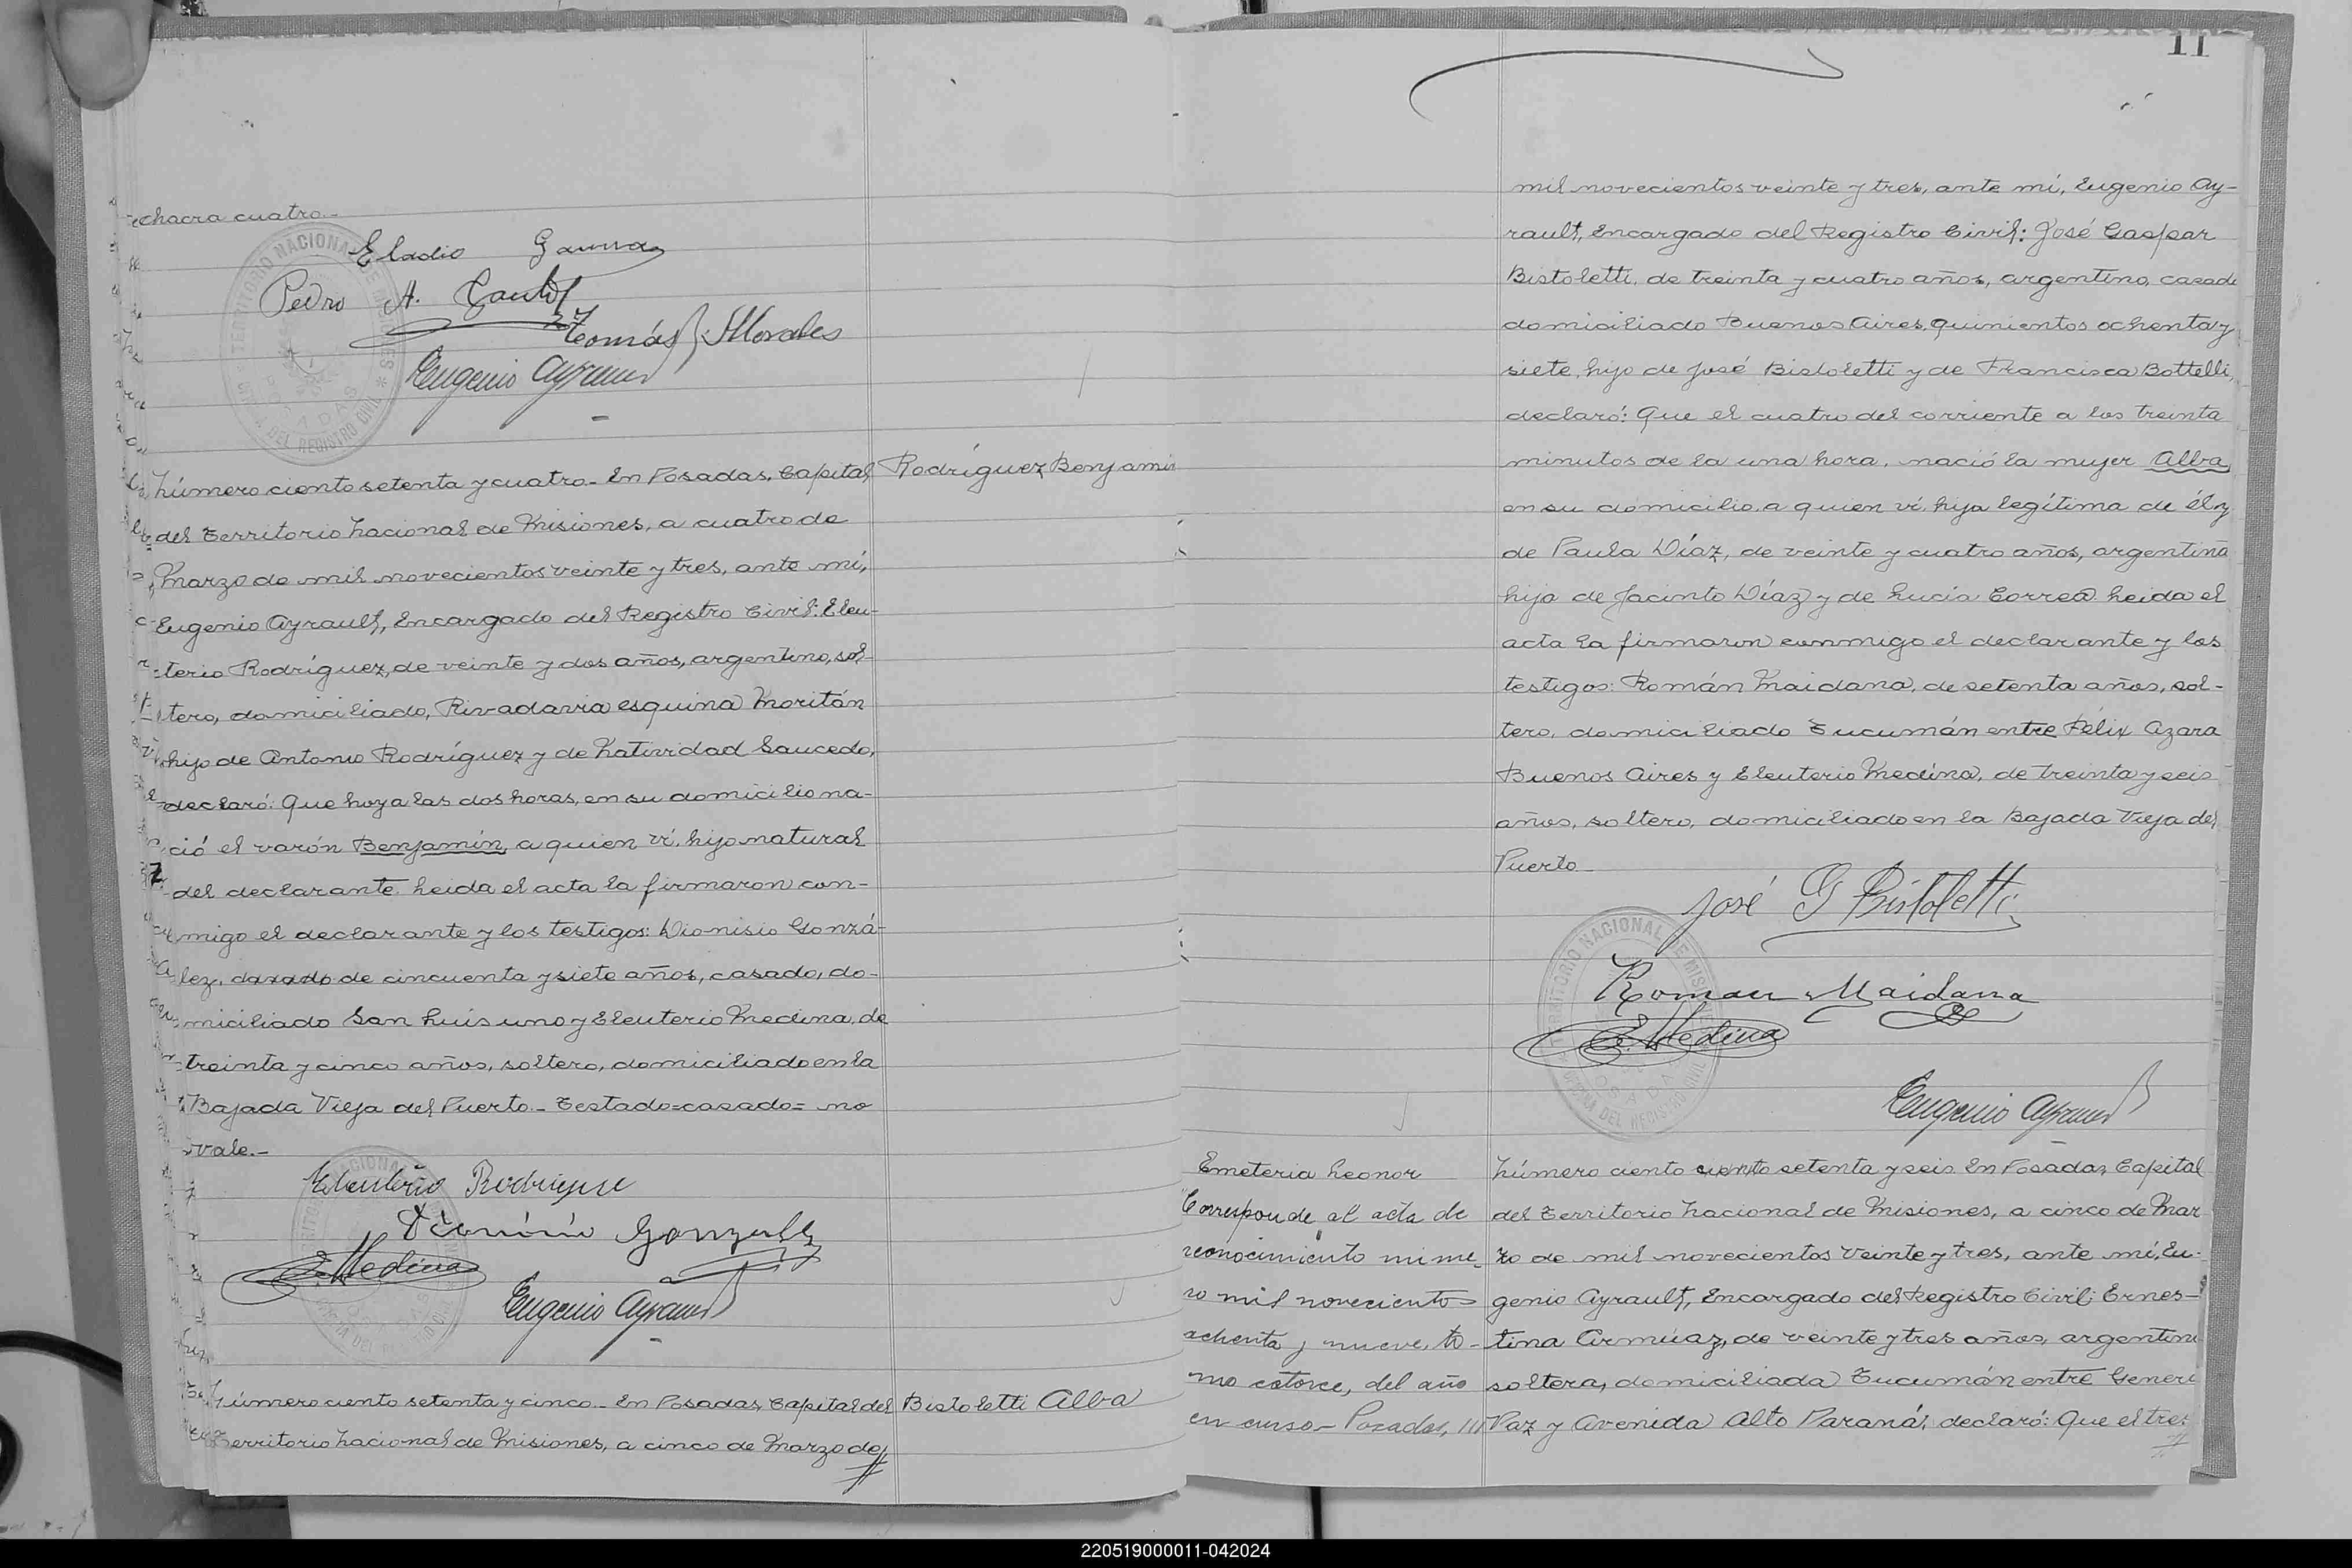 chacra cuatro.-
Eladio Gauna
Pedro A.
Tomás J. Morales
Eugenio Ayrault
Número ciento setenta y cuatro.- En Posadas, Capital
Rodríguez Benjamin
del Territorio Nacional de Misiones, a cuatro de
Marzo de mil novecientos veinte y tres, ante mí,
Eugenio Ayrault, Encargado del Registro Civil: Eleu-
terio Rodríguez, de veinte y dos años, argentino, sol-
tero, domiciliado, Rivadavia esquina Moritán
hijo de Antonio Rodríguez y de Natividad Saucedo,
declaró: Que hoy a las dos horas, en su domicilio na-
ció el varón Benjamín, a quien ví, hijo natural
del declarante. Leida el acta la firmaron con-
migo el declarante y los testigos: Dionisio Gonzá-
lez, casado de cincuenta y siete años, casado, do-
miciliado San Luis uno y Eleuterio Medina, de
treinta y cinco años, soltero, domiciliado en la
Bajada Vieja del Puerto.- Testado=casado= no
vale.-
Eleuterio Rodriguez
Dionisio Gonzalez
E. Medina
Eugenio Ayrault
Número ciento setenta y cinco.- En Posadas, Capital del
Bistoletti Alba
Territorio Nacional de Misiones, a cinco de Marzo de//
11
mil novecientos veinte y tres, ante mí, Eugenio Ay-
rault, Encargado del Registro Civil: José Gaspar
Bistoletti, de treinta y cuatro años, argentino, casado
domiciliado Buenos Aires, quinientos ochenta y
siete, hijo de José Bistoletti y de Francisca Bottelli,
declaró: Que el cuatro del corriente a los treinta
minutos de la una hora, nació la mujer Alba,
en su domicilio, a quien ví, hija legítima de él y
de Paula Díaz, de veinte y cuatro años, argentina
hija de Jacinto Díaz y de Lucía Correa. Leida el
acta la firmaron conmigo el declarante y los
testigos: Román Maidana, de setenta años, sol-
tero, domiciliado Tucumán entre Félix Azara
Buenos Aires y Eleuterio Medina, de treinta y seis
años, soltero, domiciliado en la Bajada Vieja del
Puerto.-
José G Bistoletti
Roman Maidana
E. Medina
Eugenio Ayrault
Emeteria Leonor
Corresponde al acta de
reconocimiento núme-
ro mil novecientos
ochenta y nueve, to-
mo catorce, del año
en curso - Posadas,
Número ciento ciento setenta y seis. En Posadas, Capital
del Territorio Nacional de Misiones, a cinco de Mar
zo de mil novecientos veinte y tres, ante mí, Eu-
genio Ayrault, Encargado del Registro Civil: Ernes-
tina Armúaz, de veinte y tres años, argentina
soltera, domiciliada Tucumán entre General
Paz y Avenida Alto Paraná, declaró: Que el tres
//
220519000011-042024